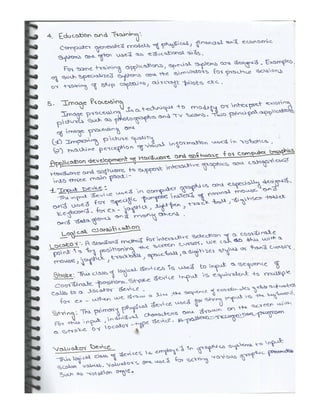 4. Education and Training:
Computer generated models of physical, financial and economic
systems are often used as educational aids.
For some training applications, special systems are designed. Examples
of such specialized systems are the simulators for practice sessions
or training of ship captains, aircraft pilots etc.
5. Image Processing
Image processing is a technique to modify or interpret existing
pictures such as photographs and TV scans. Two principal applications
of image processing are
Improving picture quality
Machine perception of visual information used in robotics.
Application development of Hardware and software for computer Graphics
Hardware and software to support interactive graphics are categorised
into three main part:-
1. Input Device:
The input device used in computer graphics are especially designed
and used for specific purpose instead of normal mouse and
keyboard. for ex:- joystick, light pen, track ball, digitiser tablet
and data gloves and many others.
Logical Classification
Locator: A standard method for interactive selection of a coordinate
point is by positioning the screen cursor. We can do this with a
mouse, joystick, trackball, spaceball, digitiser stylus or hand cursor
Stroke: This class of logical devices is used to input a sequence of
coordinate positions. Stroke device input is equivalent to multiple
calls to a locator device.
for ex - when we draw a line the sequence of coordinates gets activated
String: The primary physical device used for string input is the keyboard.
For this input, individual characters are drawn on the screen with
a stroke or locator-type device. A pattern-recognition program
Valuator Device
This logical class of devices is employed in graphics systems to input
scalar values. Valuators are used for setting various graphic parameters
such as rotation angle.